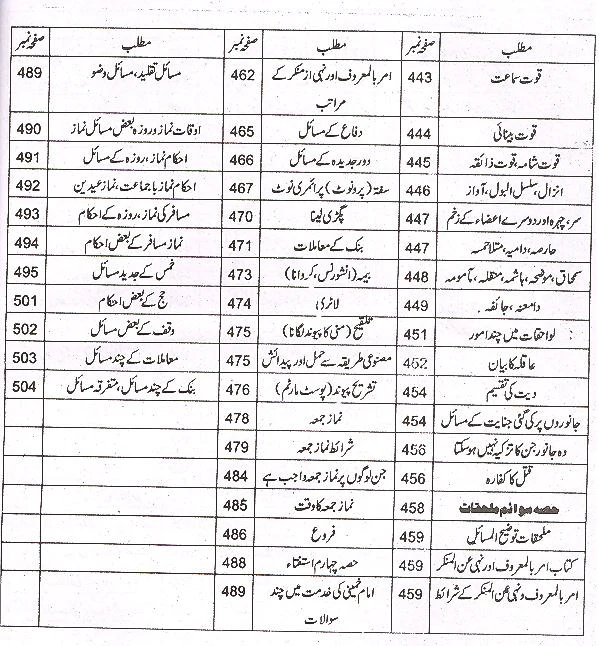 مطلب صفحہ نمبر مطلب صفحہ نمبر مطلب صفحہ نمبر
قوت سماعت 443 امر بالمعروف اور نہی از منکر کے مراتب 462 مسائل تقلید، مسائل وضو 489
قوت بینائی 444 دفاع کے مسائل 465 اوقات نماز و روزہ بعض مسائل نماز 490
قوت شامہ، قوت ذائقہ 445 دور جدیدہ کے مسائل 466 احکام نماز، روزہ کے مسائل 491
انزال، سلسل البول، آواز 446 سفتہ (پرونوٹ) پرائمری نوٹ 467 احکام نماز با جماعت، نماز عیدین 492
سر، چہرہ اور دوسرے اعضاء کے زخم 447 پگڑی لینا 470 مسافر کی نماز، روزہ کے احکام 493
حارصہ، دامیہ، متلاحمہ 447 بنک کے معاملات 471 نماز مسافر کے بعض احکام 494
سمحاق، موضحہ، ہاشمہ، منقلہ، مأمومہ 448 بیمہ (انشورنس، کروانا) 473 خمس کے جدید مسائل 495
دامغہ، جائفہ 449 لاٹری 474 حج کے بعض احکام 501
لواحقات میں چند امور 451 تلقیح (منی کا پیوند لگانا) 475 وقف کے بعض مسائل 502
عاقلہ کا بیان 452 مصنوعی طریقہ سے حمل اور پیدائش 475 معاملات کے چند مسائل 503
دیت کی تقسیم 454 تشریح پیوند (پوسٹ مارٹم) 476 بنک کے چند مسائل، متفرقہ مسائل 504
جانوروں پر کی گئی جنایت کے مسائل 454 نماز جمعہ 478
وہ جانور جن کا تزکیہ نہیں ہو سکتا 456 شرائط نماز جمعہ 479
قتل کا کفارہ 456 جن لوگوں پر نماز جمعہ واجب ہے 484
حصہ سوائم ملحقات 458 نماز جمعہ کا وقت 485
ملحقات توضیح المسائل 459 فروع 486
کتاب امر بالمعروف اور نہی عن المنکر 459 حصہ چہارم استفتاء 488
امر بالمعروف و نہی عن المنکر کے شرائط 459 امام خمینی کی خدمت میں چند سوالات 489